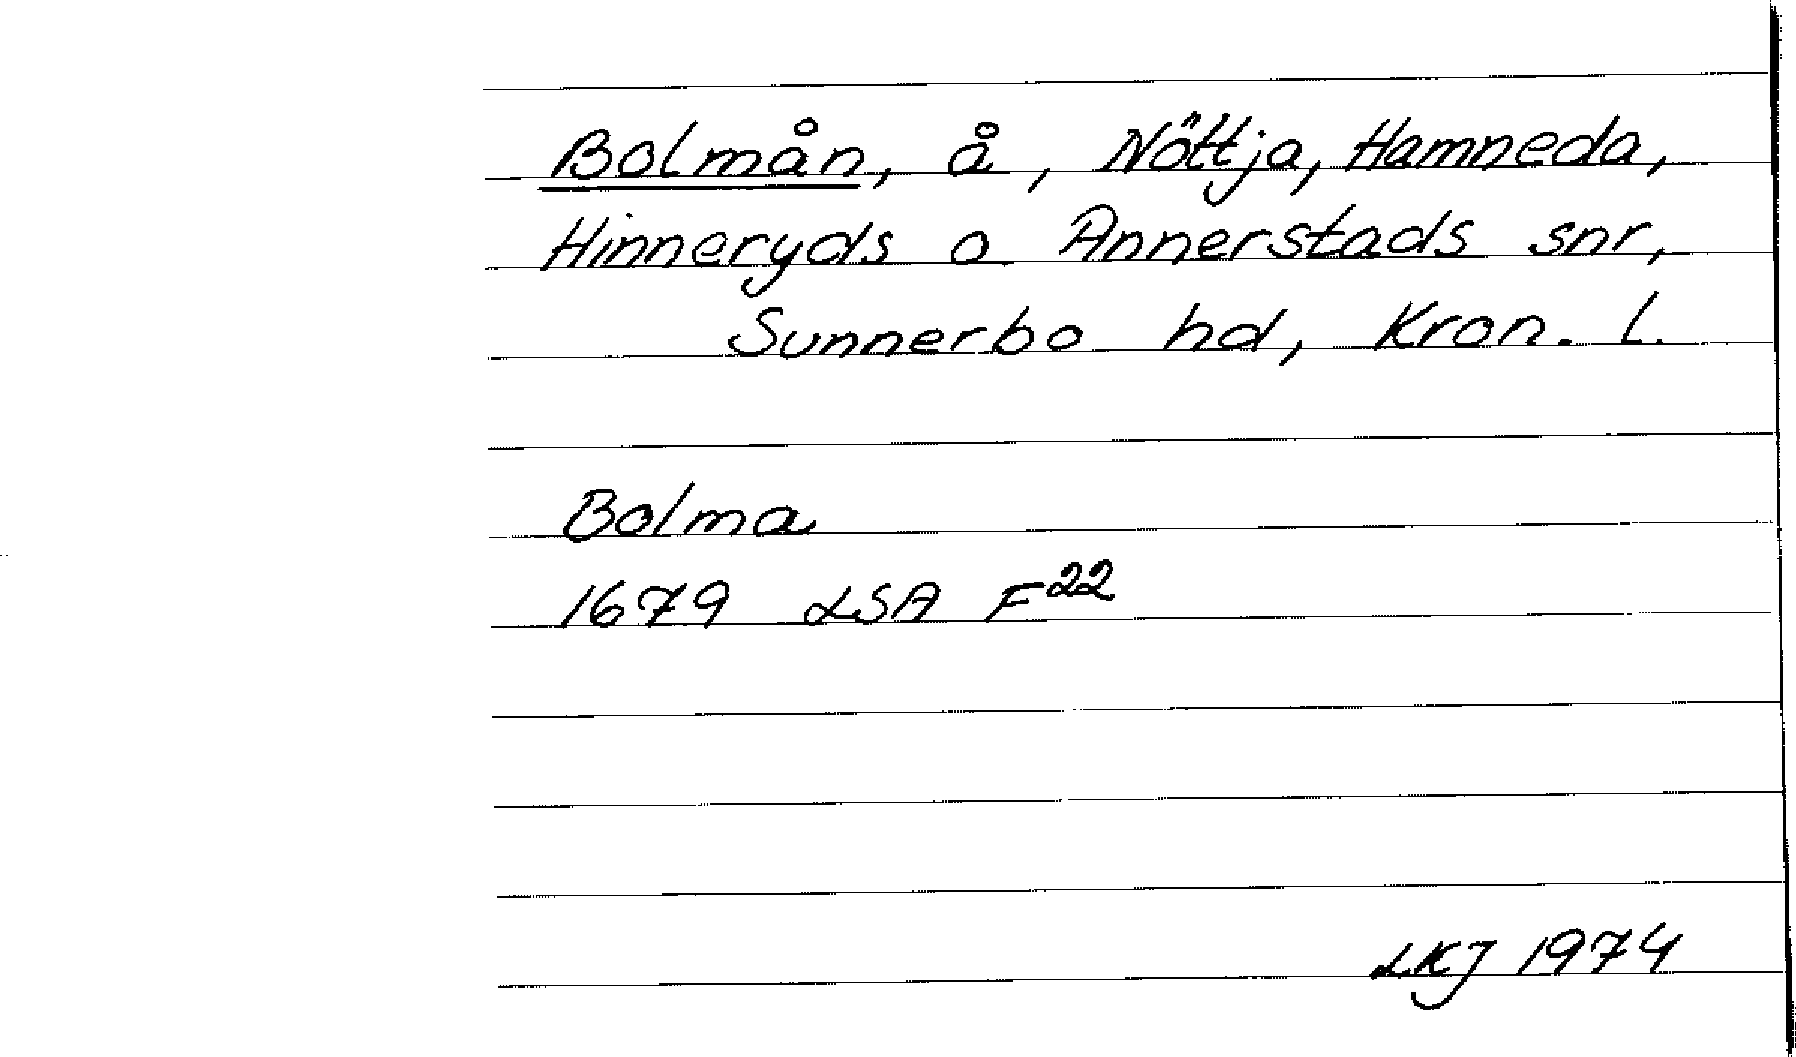 Bolmån, å, Nöttja, Hamneda,
Hinneryds o Annerstads snr,
Sunnerbo hd, Kron. l.
Bolma
1679 LSA F22
LKJ 1974